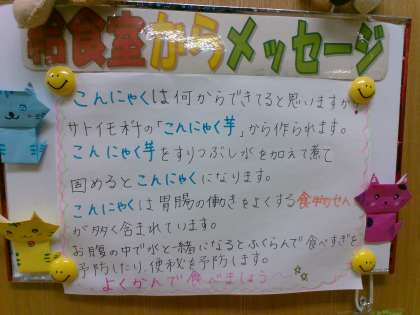 給食室からメッセージ
こんにゃくは何からできてると思いますか?
サトイモ科の「こんにゃく芋」から作られます。
こんにゃく芋をすりつぶし水を加えて煮て
固めるとこんにゃくになります。
こんにゃくは胃腸の働きをよくする食物せんい
が多く含まれています。
お腹の中で水と一緒になるとふくらんで食べすぎを
予防したり、便秘を予防します。
よくかんで食べましょう〜